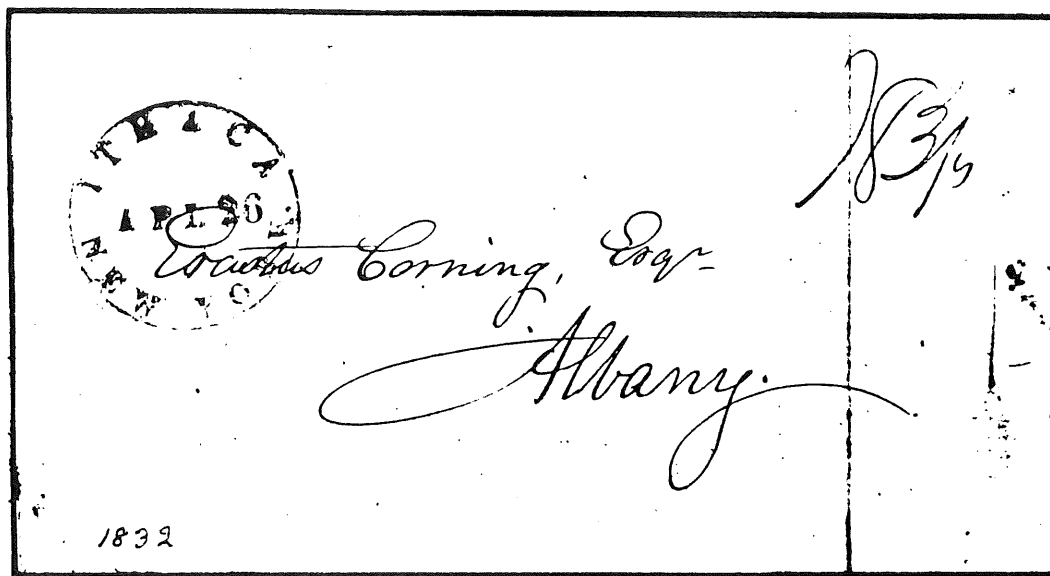 ITHACA
APL 26
NEW YORK
18 3/4
Erastus Corning, Esqr
Albany.
1832